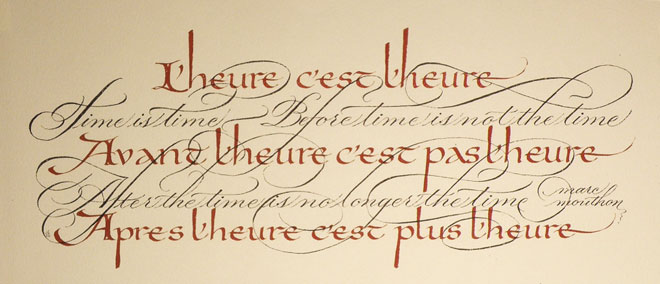 L'heure c'est l'heure
Time is time Before time is not the time
Avant l'heure c'est pas l'heure
After the time is no longer the time marc mouthon
Apres l'heure c'est plus l'heure